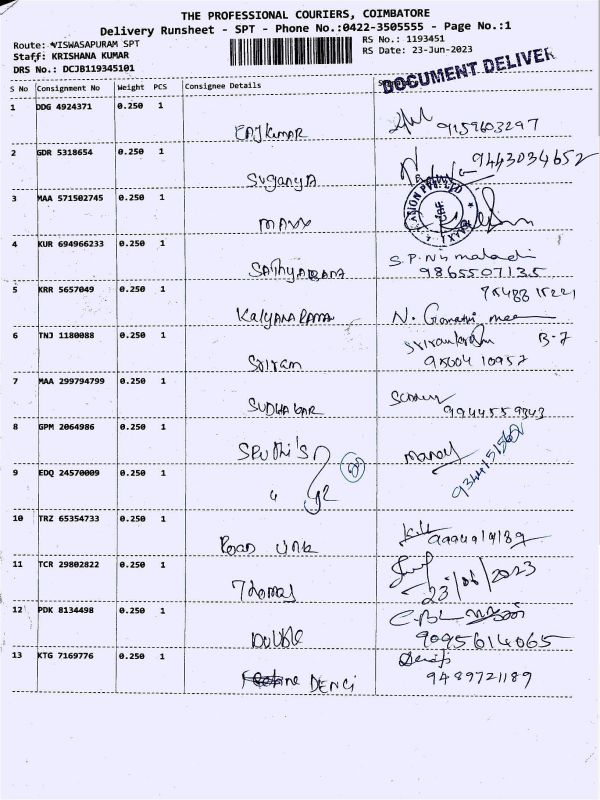 THE PROFESSIONAL COURIERS, COIMBATORE
Delivery Runsheet - SPT - Phone No.:0422-3505555 - Page No.:1
Route: VISWASAPURAM SPT
RS No.: 1193451
Staff: KRISHANA KUMAR
RS Date: 23-Jun-2023
DRS No.: DCJB119345101
DOCUMENT DELIVER
S No Consignment No Weight PCS Consignee Details
1 DDG 4924371 0.250 1
RAJKUMAR 9159603297
2 GDR 5318654 0.250 1
SUGANYA 9443034652
3 MAA 571502745 0.250 1
MAXX
4 KUR 694966233 0.250 1
SATHYABAMA S.P. 9865507135
5 KRR 5657049 0.250 1
KALYANARAMA N. Gomathi
6 TNJ 1180088 0.250 1
B-7
SRIRAM 9500410957
7 MAA 299794799 0.250 1
SUDHAKAR 9944559343
8 GPM 2064986 0.250 1
SRUTHI'S Manoj
9 EDQ 24570009 0.250 1
10 TRZ 65354733 0.250 1
ROAD LINK
11 TCR 29802822 0.250 1
THOMAS 23/06/2023
12 PDK 8134498 0.250 1
DOUBLE 9095614065
13 KTG 7169776 0.250 1
DENCI 9489721189